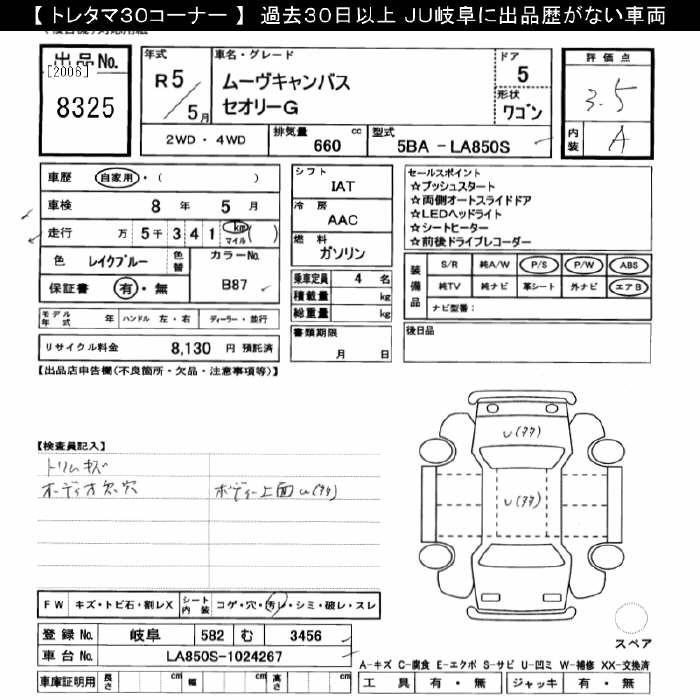 【 トレタマ30コーナー 】 過去30日以上 JU岐阜に出品歴がない車両
出品No.
[2006]
8325
年式
R5
5月
車名・グレード
ムーヴキャンバス
セオリーG
ドア
5
形状
ワゴン
2WD ・ 4WD
排気量
660
cc
型式
5BA - LA850S
評価点
3.5
内装
A
車歴 自家用・( )
車検 8 年 5 月
走行 万 5 千 3 4 1 km マイル ( )
色 レイクブルー
色替
カラーNo.
B87
保証書 有・無
モデル年式 年
ハンドル 左・右
ディーラー・並行
リサイクル料金 8,130 円 預託済
シフト
IAT
冷房
AAC
燃料
ガソリン
乗車定員 4 名
積載量 kg
総重量 kg
書類期限
月 日
セールスポイント
☆プッシュスタート
☆両側オートスライドドア
☆LEDヘッドライト
☆シートヒーター
☆前後ドライブレコーダー
装備品
S/R 純A/W P/S P/W ABS
純TV 純ナビ 革シート 外ナビ エアB
ナビ型番：
後日品
【出品店申告欄(不良箇所・欠品・注意事項等)】
【検査員記入】
トリムキズ
オーディオ欠 穴
ボディー上面 U(タタ)
U(タタ)
U(タタ)
FW キズ・トビ石・割レX
シート内装 コゲ・穴・汚レ・シミ・破レ・スレ
登録No. 岐阜 582 む 3456
車台No. LA850S-1024267
車庫証明用 長さ cm 幅 cm 高さ cm
スペア
A-キズ C-腐食 E-エクボ S-サビ U-凹ミ W-補修 XX-交換済
工具 有・無 ジャッキ 有・無